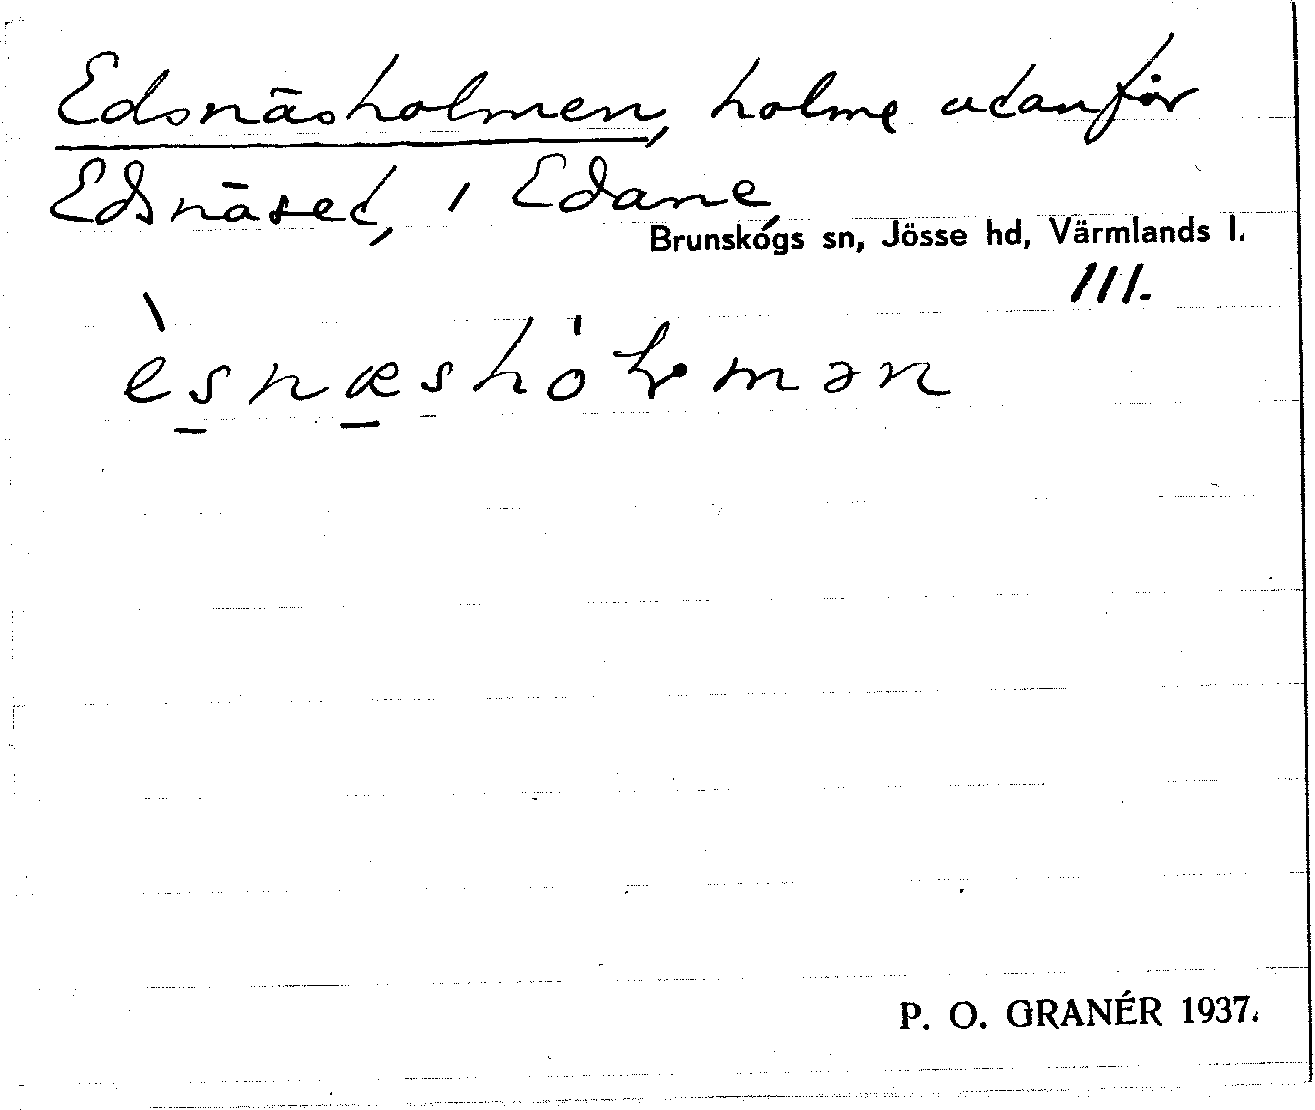 Edsnäsholmen, holme utanför
Edsnäset, i Edane,
Brunskogs sn, Jösse hd, Värmlands l.
III.
P. O. GRANÉR 1937.